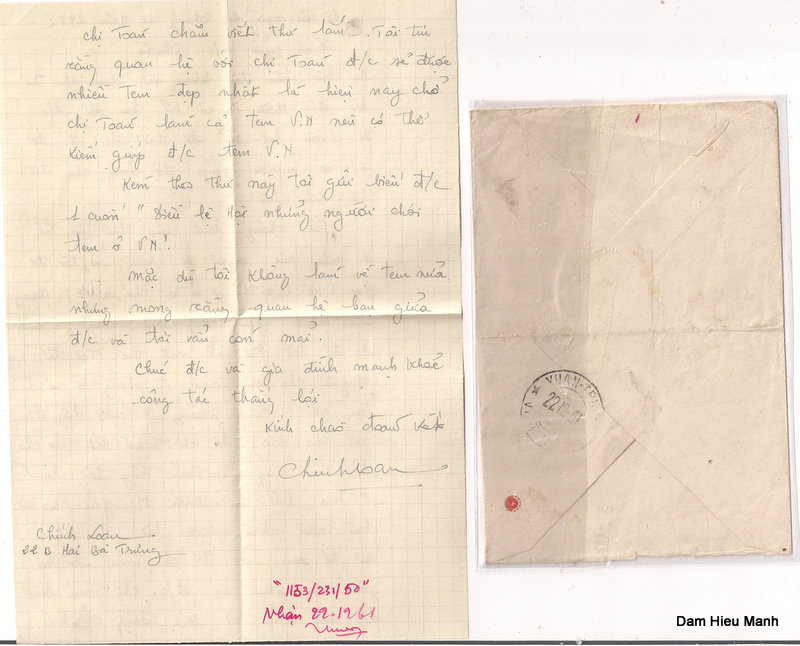 chị Toàn chăm viết thư lắm. Tôi tin
rằng quan hệ với chị Toàn đ/c sẽ được
nhiều tem đẹp nhất là hiện nay chở
chị Toàn làm cả tem V.N nên có thể
kiếm giúp đ/c tem V.N.
Kèm theo thư này tôi gửi biếu đ/c
1 cuốn "Điều lệ Hội những người chơi
tem ở V.N".
Mặc dù tôi không làm về tem nữa
nhưng mong rằng quan hệ bạn giữa
đ/c và tôi vẫn còn mãi.
Chúc đ/c và gia đình mạnh khoẻ
công tác thắng lợi
Kính chào đoàn kết
Chinhloan
Chinh Loan
22 B Hai Bà Trưng
"1153/231/50"
Nhận 22-1961
XUAN-
22
Dam Hieu Manh